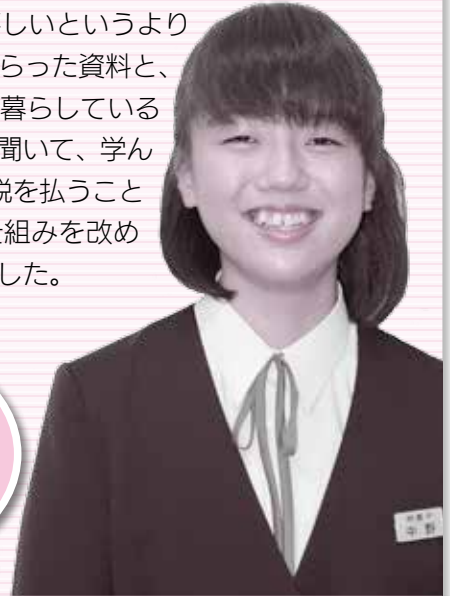 しいというより
らった資料と、
暮らしている
聞いて、学ん
税を払うこと
組みを改め
した。
中野